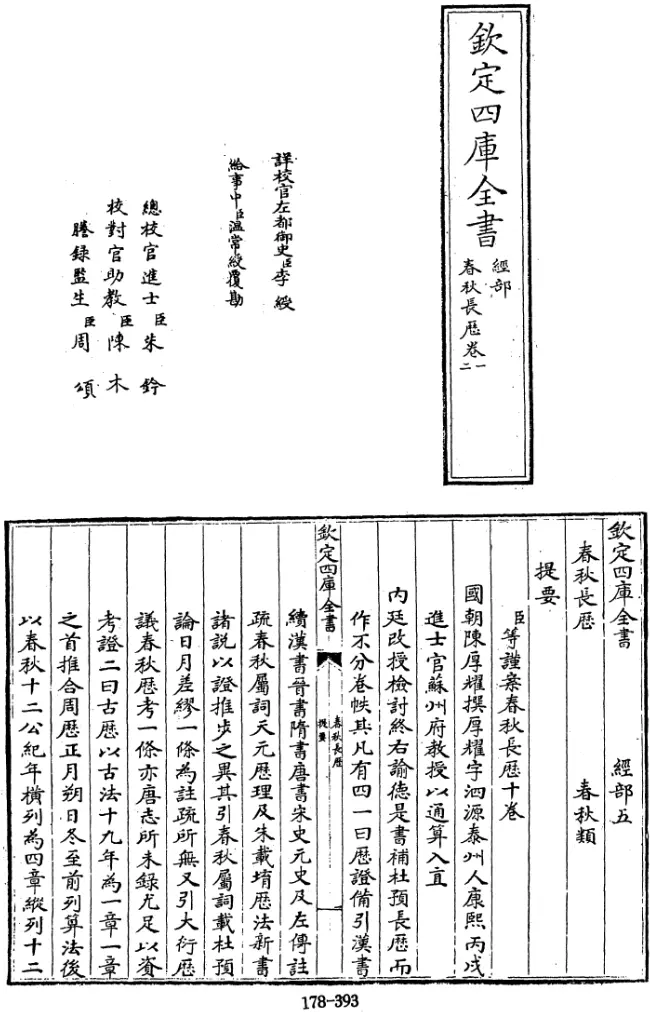 欽定四庫全書
經部
春秋長歷卷一
二
詳校官左都御史臣李綬
給事中臣溫常綬覆勘
總校官進士臣朱鈐
校對官助教臣陳木
謄錄監生臣周頌
欽定四庫全書　經部五
春秋長歷　春秋類
提要
臣等謹案春秋長歷十卷
國朝陳厚耀撰厚耀字泗源泰州人康熙丙戌
進士官蘇州府教授以通算入直
內廷改授檢討終右諭德是書補杜預長歷而
作不分卷帙其凡有四一曰歷證備引漢書
欽定四庫全書
春秋長歷
提要
續漢書晉書隋書唐書宋史元史及左傳註
疏春秋屬詞天元歷理及朱載堉歷法新書
諸說以證推步之異其引春秋屬詞載杜預
論日月差繆一條為註疏所無又引大衍歷
議春秋歷考一條亦唐志所未録尤足以資
考證二曰古歷以古法十九年為一章一章
之首推合周歷正月朔日冬至前列算法後
以春秋十二公紀年橫列為四章縱列十二
178-393